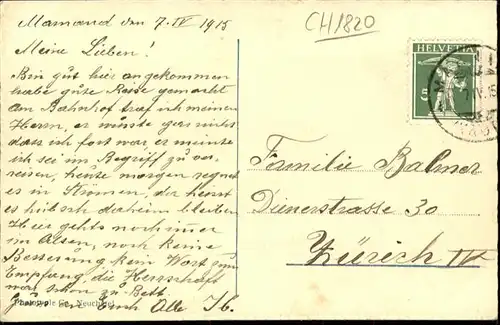 Mamand den 7. IV 1915
CH1820
Meine Lieben!
Bin gut hier angekommen
habe gute Reise gemacht
am Bahnhof traf ich meinen
Herrn, er wusste gar nicht
dass ich fort war er meinte
ich sei im Begriff zu ver-
reisen, heute morgen regnet
es in Strömen, der heisst
es hübsch daheim bleiben
Hier gehts noch immer
im Alten, noch keine
Besserung kein Wort zum
Empfang, die Herrschaft
war schon zu Bett
Grüsse Euch Alle
HELVETIA
5
Familie Balmer
Dienerstrasse 30
Zürich IV
Phototypie Co. Neuchâtel